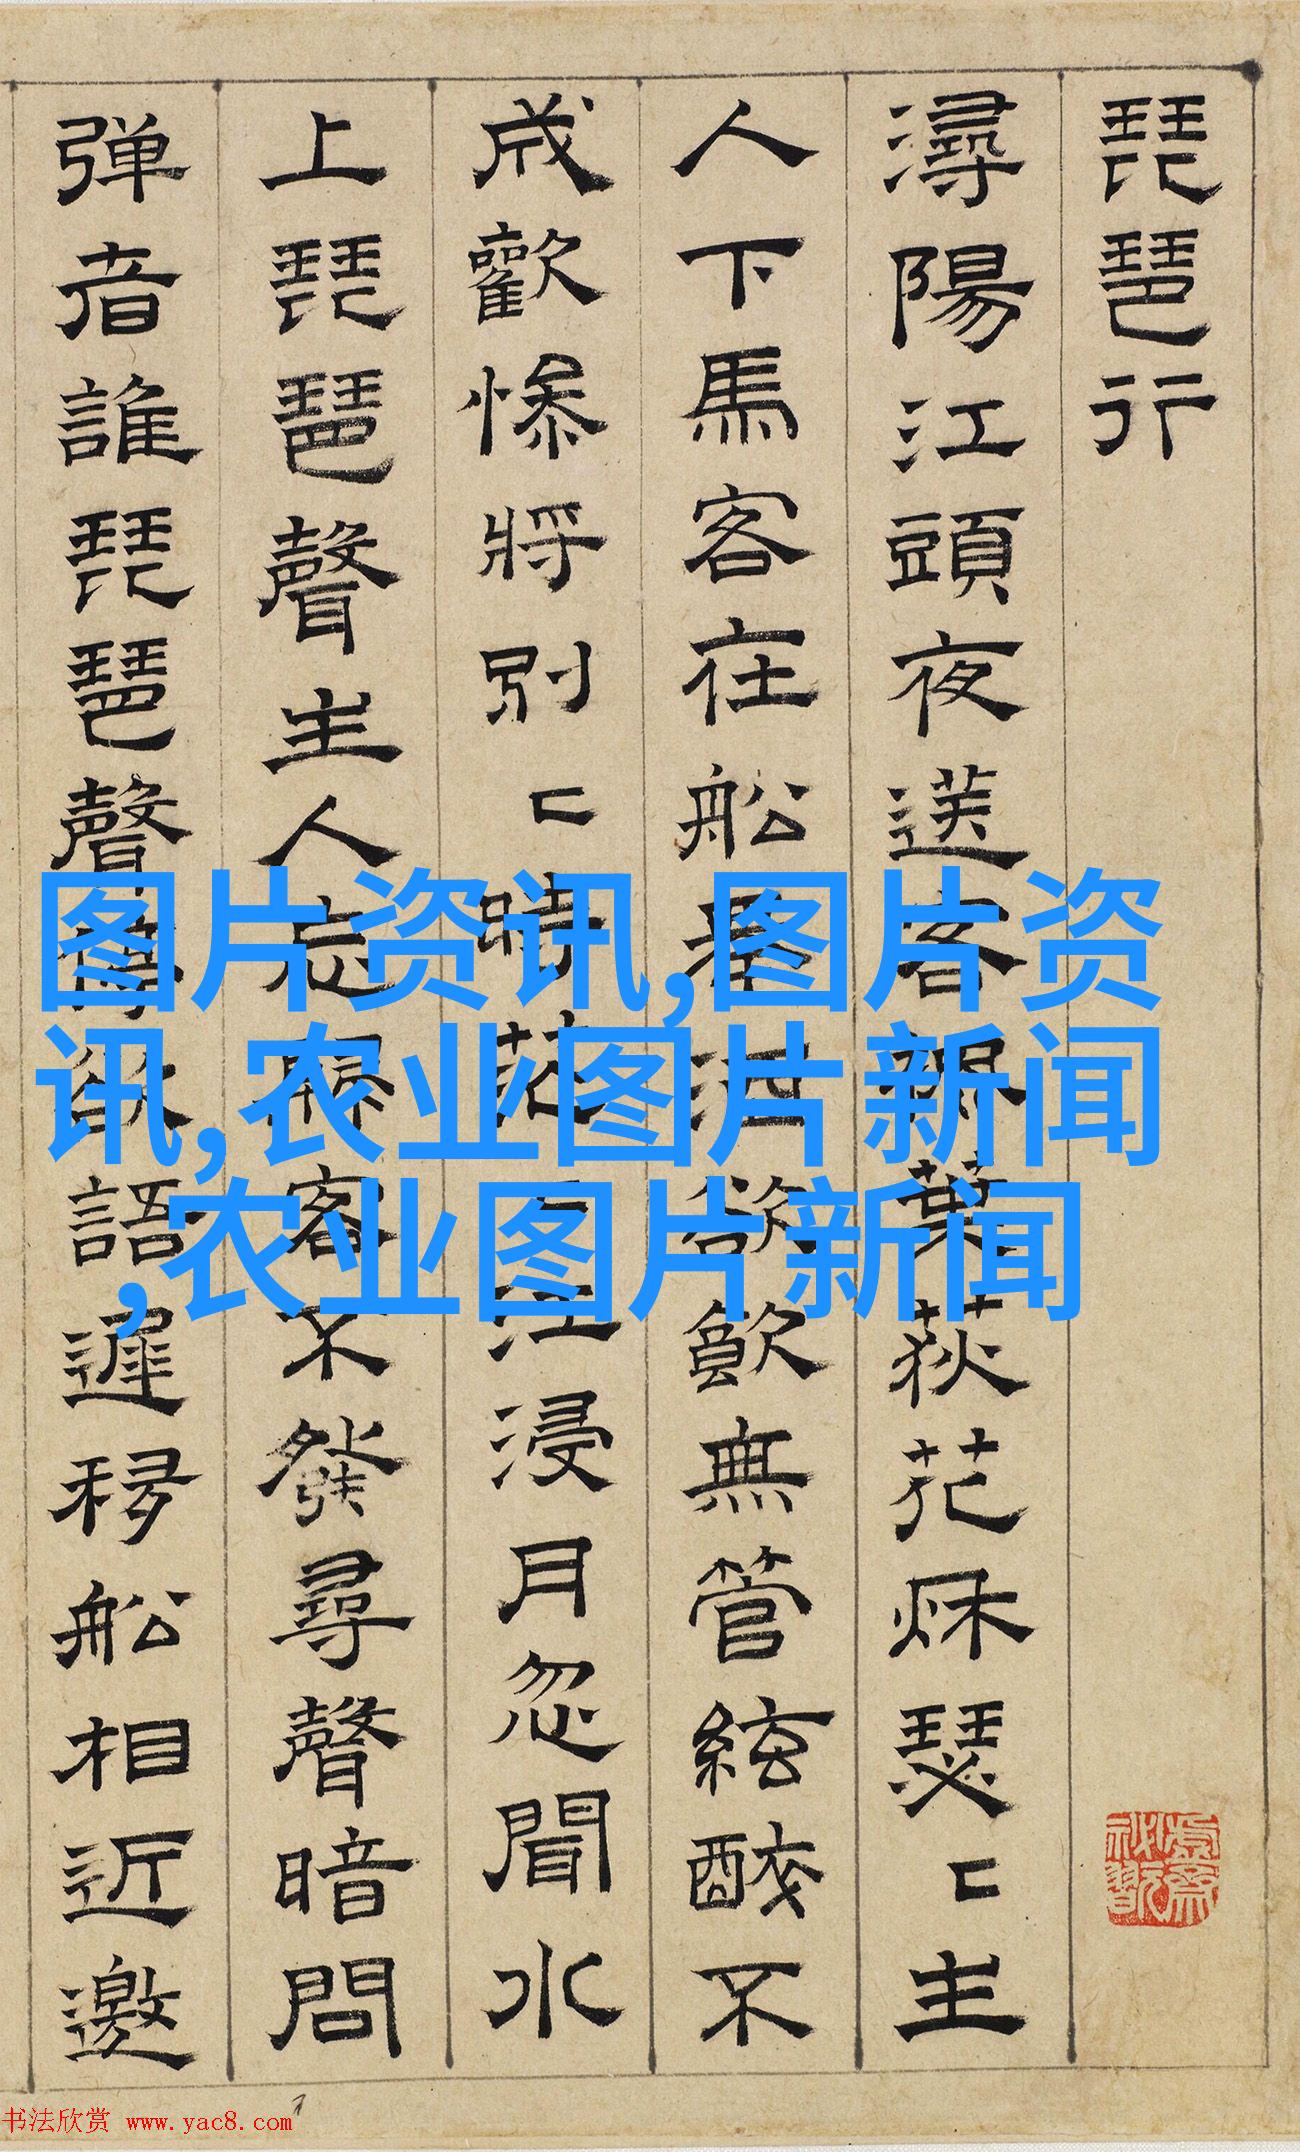 琵琶行
潯陽江頭夜送客楓葉荻花秋瑟〻主
人下馬客在船舉酒欲飲無管絃醉不
成歡慘將別〻時茫〻江浸月忽聞水
上琵琶聲主人忘歸客不發尋聲暗問
弹者誰琵琶聲停欲語遲移船相近邀
图片资讯,图片资
讯,农业图片新闻
,农业图片新闻
书法欣赏 www.yac8.com